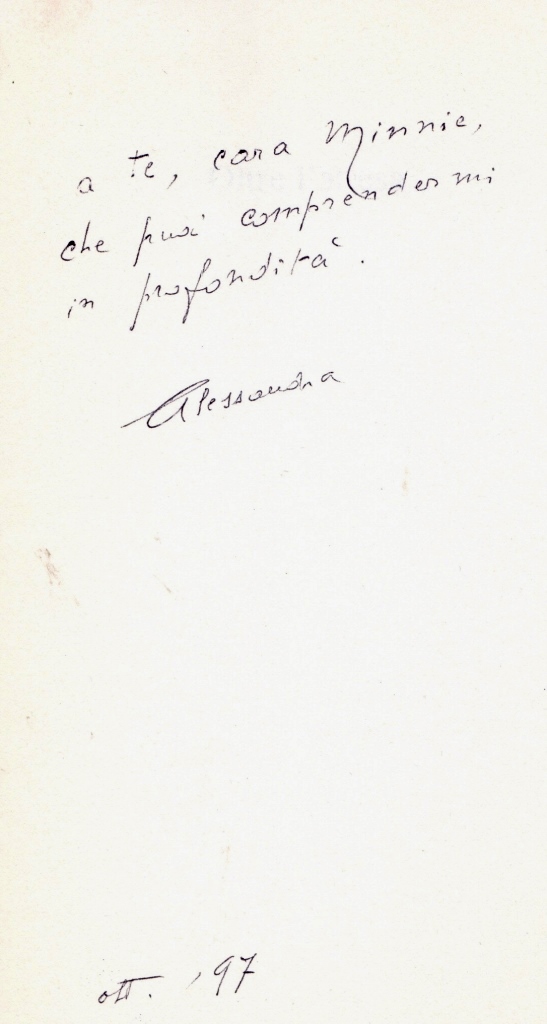 a te, cara Minnie,
che puoi comprendermi
in profondità.
Alessandra
ott. '97